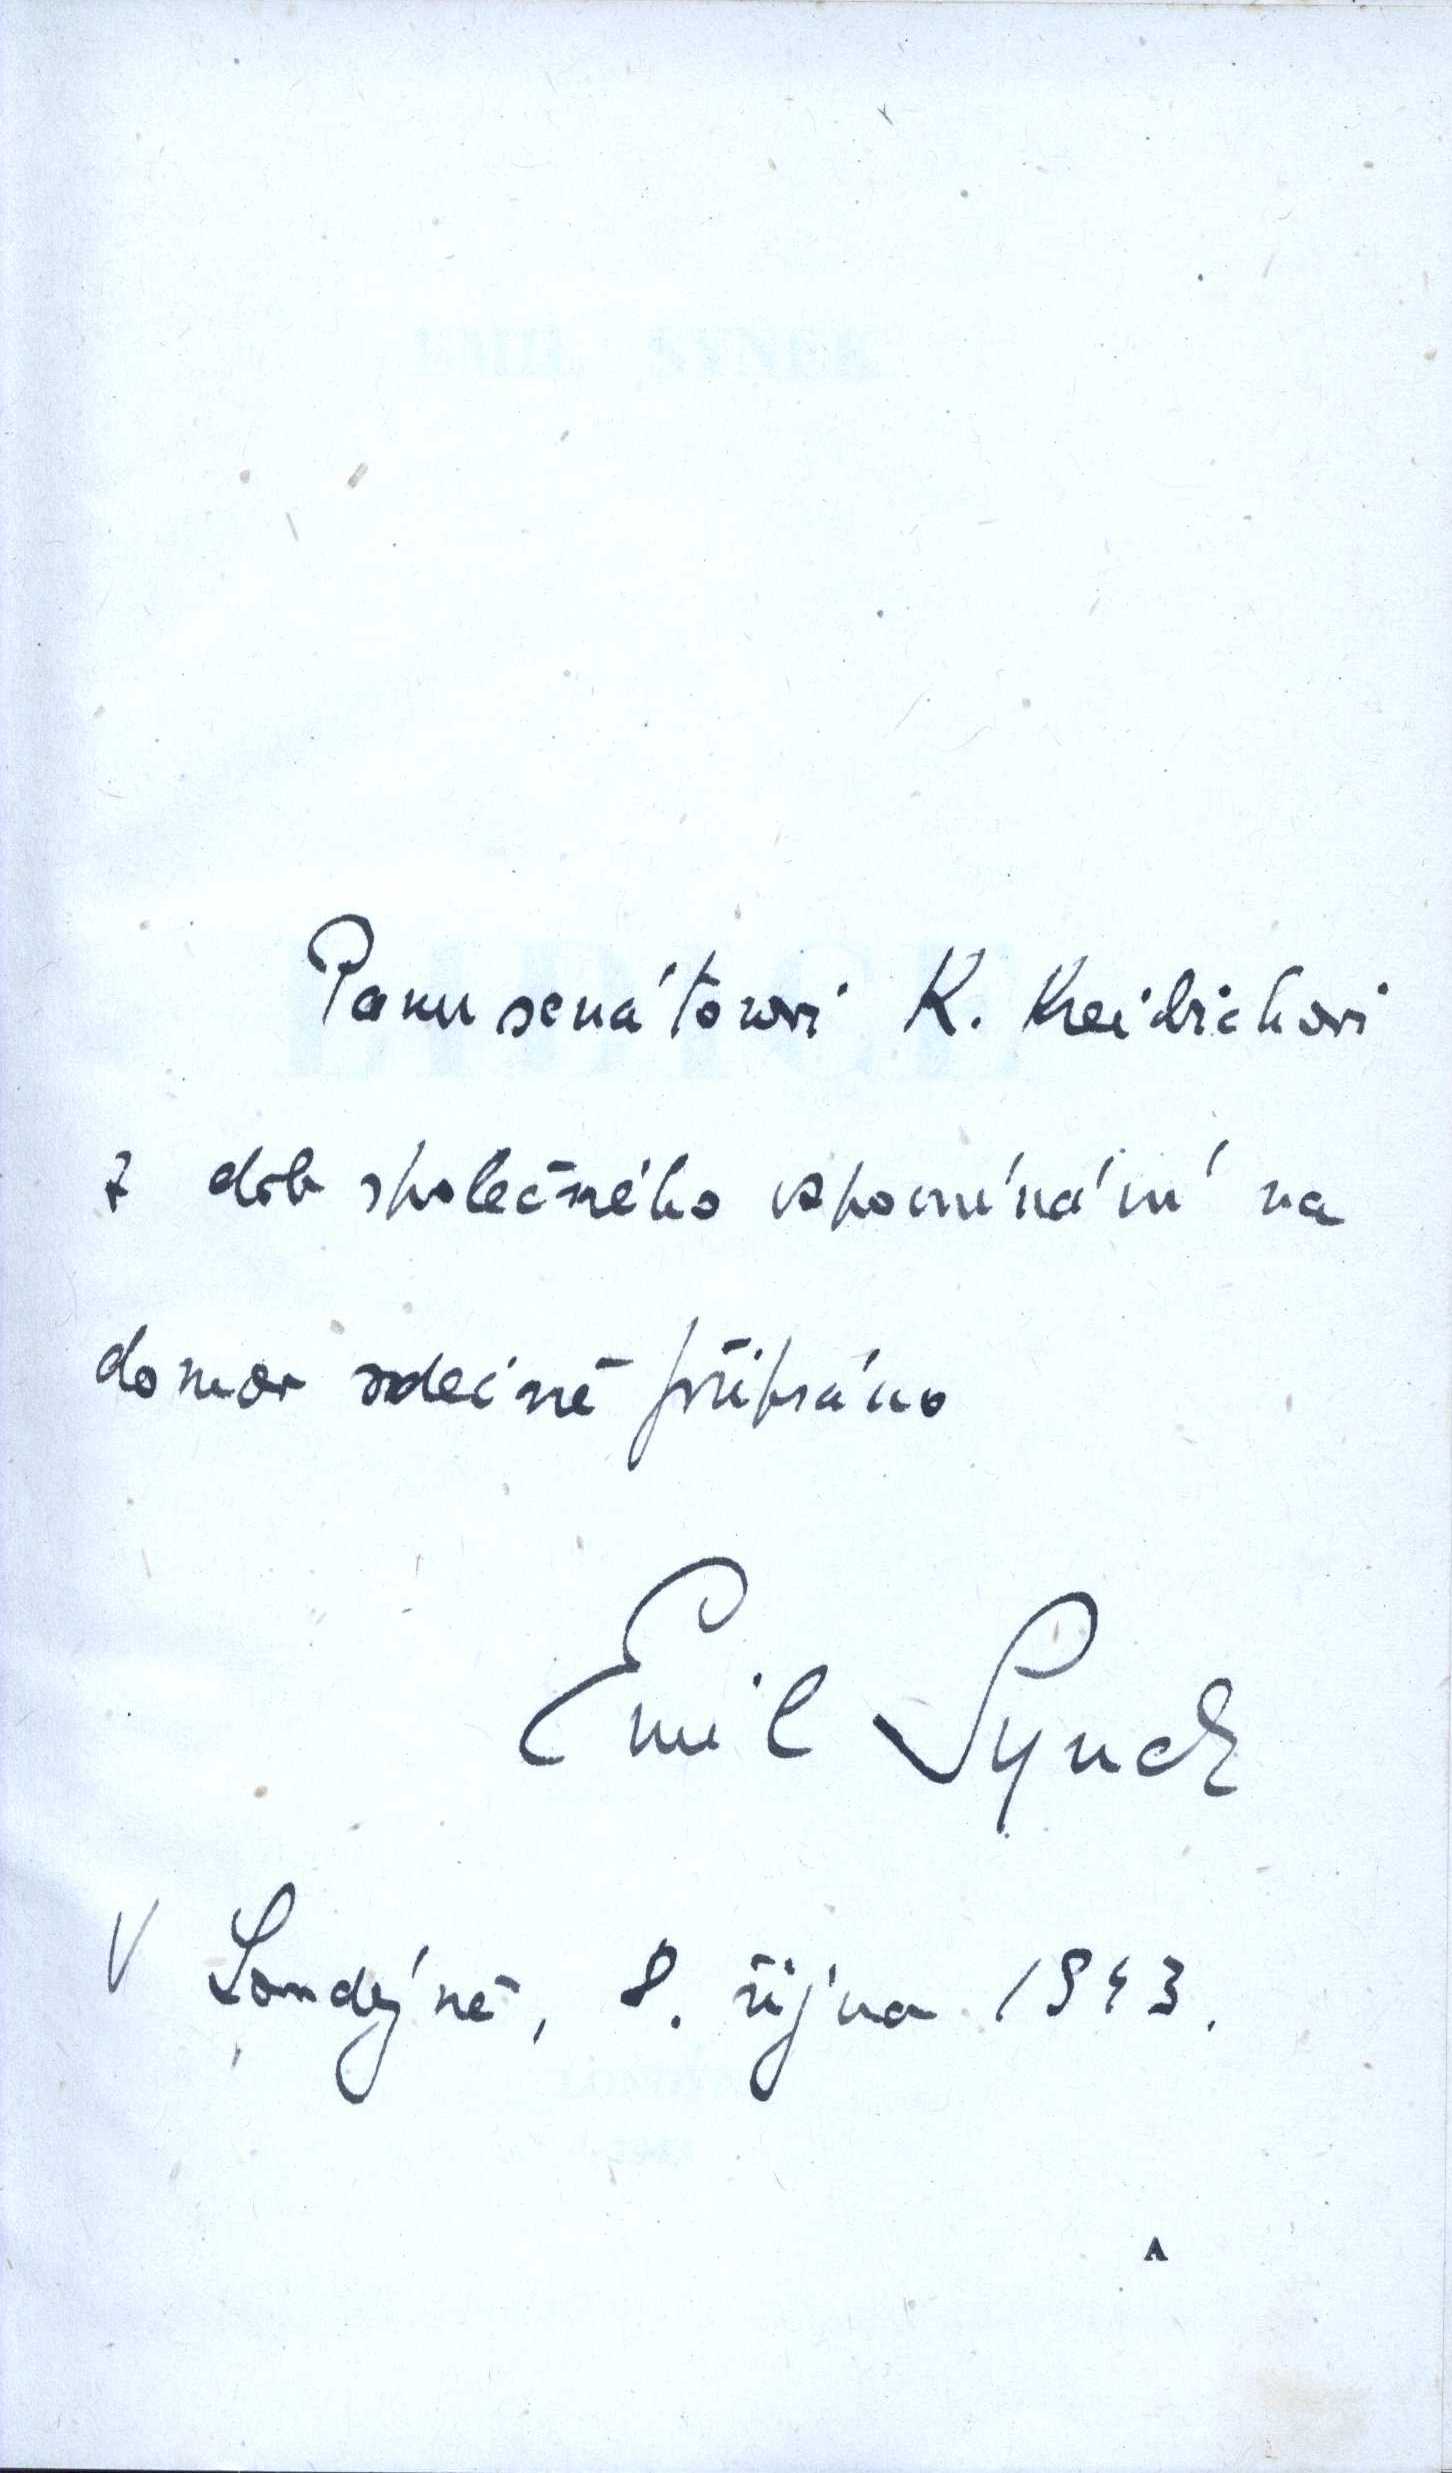 EMIL SYNEK
LIDICE
Panu senátorovi K. Kreibichovi
z dob společného vzpomínání na
domov srdečně připsáno
Emil Synek
V Londýně, 8. října 1943.
LONDÝN
A